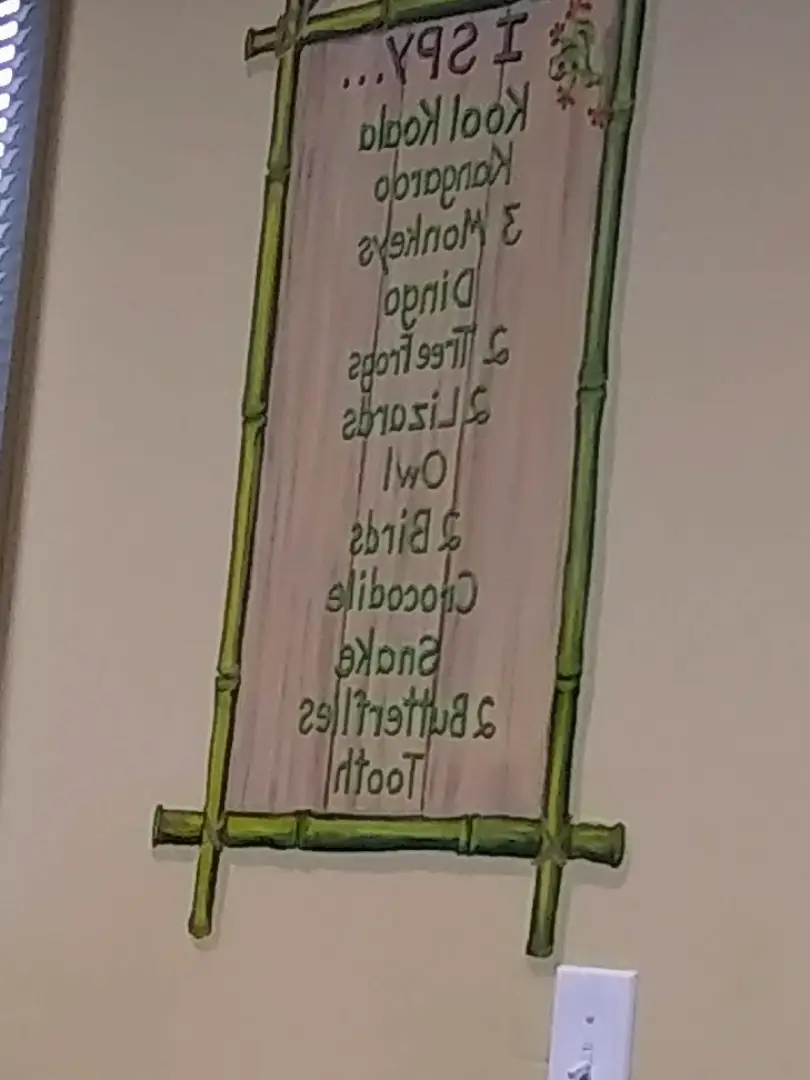 I SPY...
Kool Koala
Kangaroo
3 Monkeys
Dingo
2 Tree Frogs
2 Lizards
Owl
2 Birds
Crocodile
Snake
2 Butterflies
Tooth